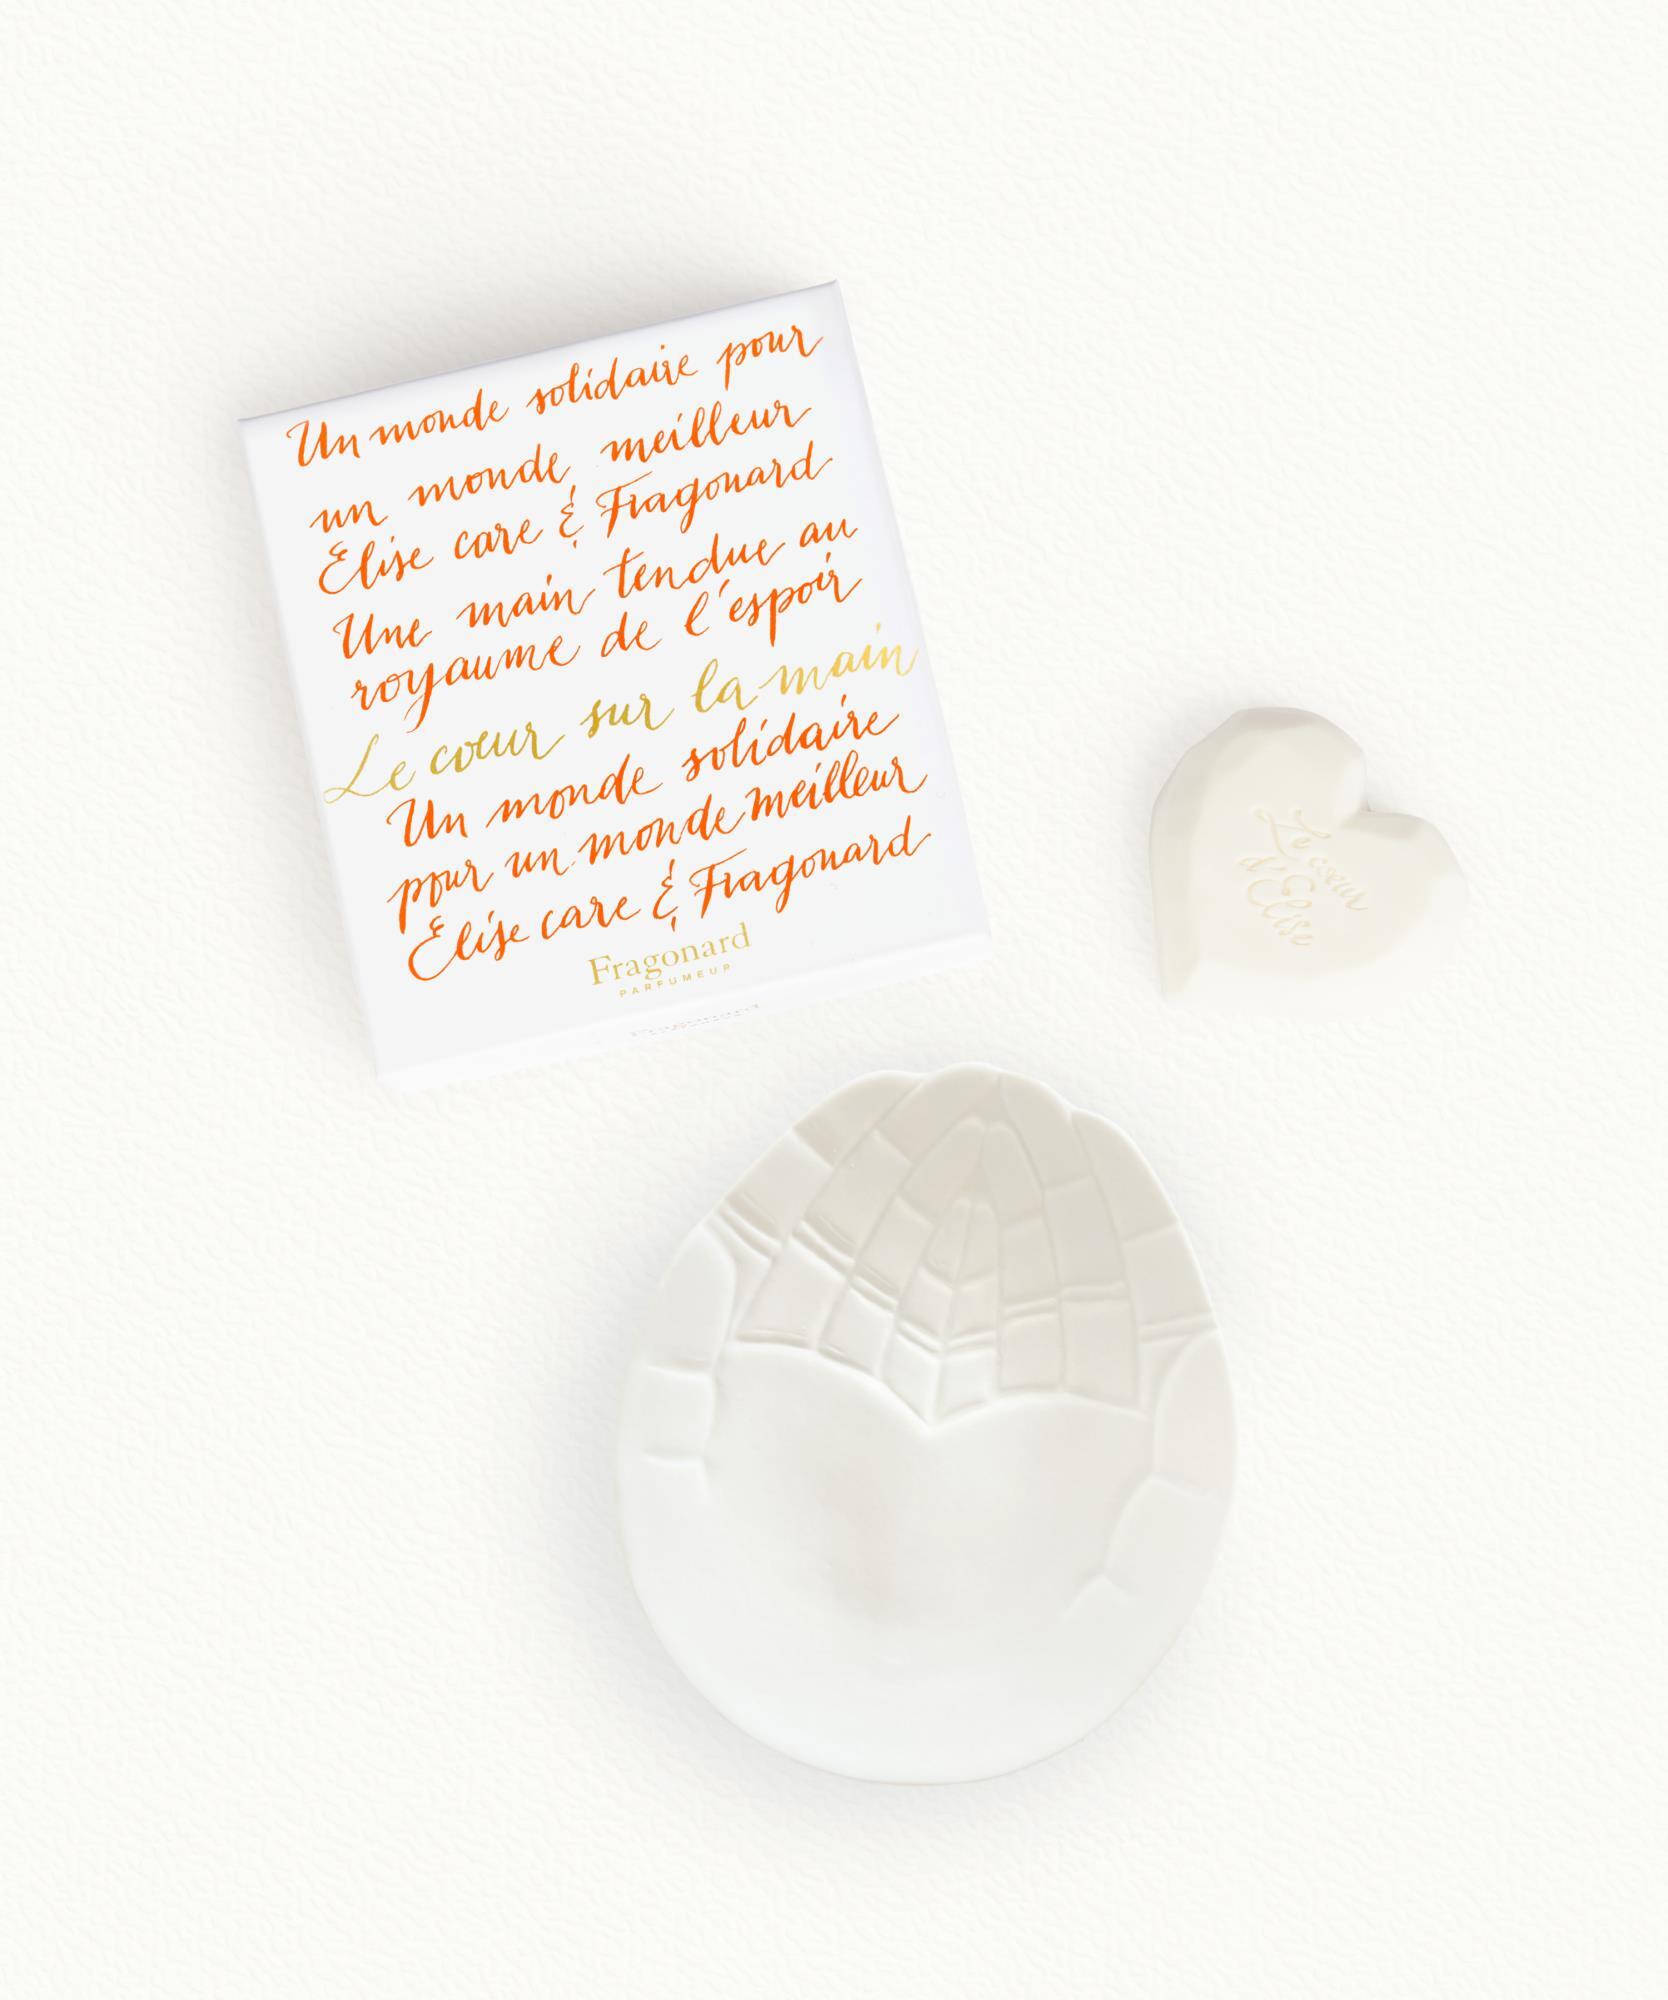 Un monde solidaire pour
un monde meilleur
Elise care & Fragonard
Une main tendue au
royaume de l'espoir
Le cœur sur la main
Un monde solidaire
pour un monde meilleur
Elise care & Fragonard
Fragonard
PARFUMEUR
Fragonard
Le cœur
d'Elise